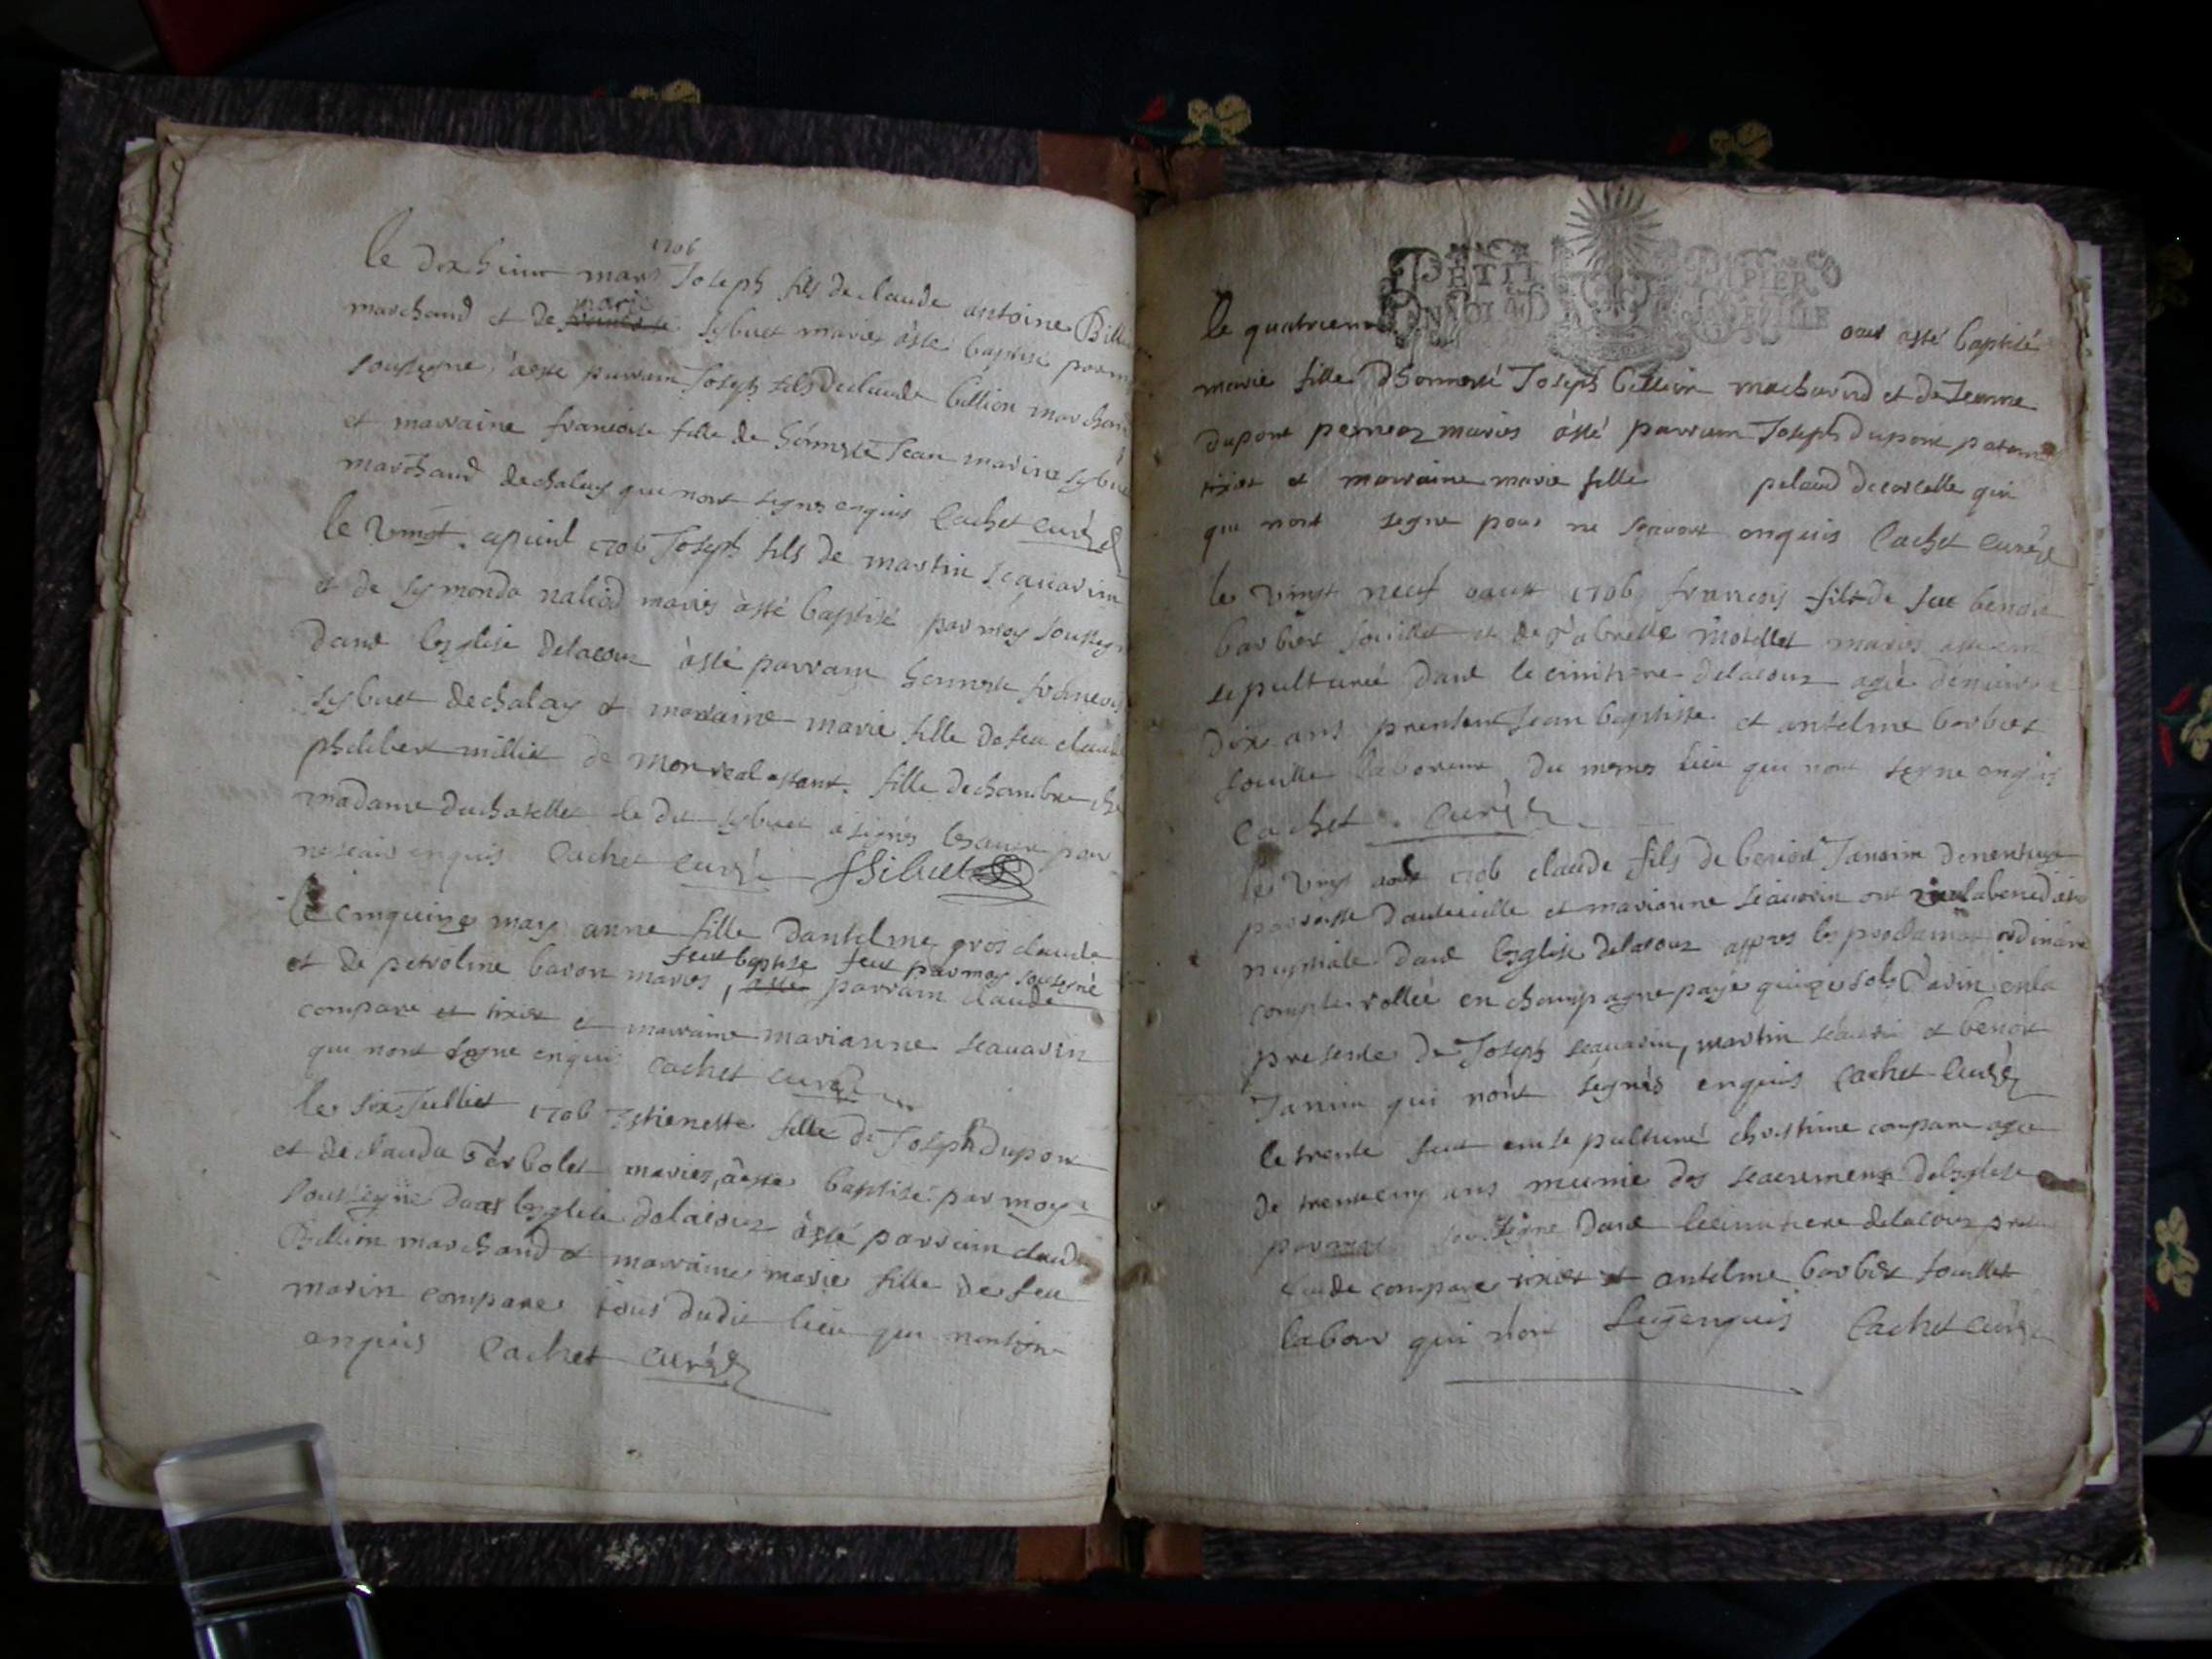 1706
le dix huict mars Joseph fils de claude antoine Billi
marchand et de marie sybuet maries àsté baptisé par m
soussigne, àesté parrain Joseph fils declaude billion marchan
et marraine francoise fille de honneste Jean marine sybue
marchand dechaley qui nont signes enquis Cachet curé
le vingt apvril 1706 Joseph fils de martin scauarin
et de symonda naliod maries àsté baptisé par moy sousseg
dans leglise delacoux àsté parrain honneste
sybuet dechaley et marraine marie fille defeu claud
philibert milliet de monreal estant fille dechambre che
madame duchatellet le dit sybuet a signés lesautre pour
nescais enquis Cachet curé FSibuet
le cinquieme may anne fille dantelme gros claude
et de petroline baron maries, feut baptise par moy soussigné
parrain claude
compare et tixier et marraine marianne scauarin
qui nont segne enquis Cachet curé
le six Julliet 1706 Estienette fille de Joseph dupont
et declauda borbolet maries, àesté baptisé par moy
soussigne dans leglise delacoux àsté parrain claude
Billion marchand et marraine marie fille de feu
marin compare tous dudit lieu qui nontsigne
enquis Cachet curé
PETIT PAPIER
le quatrieme oust asté baptisé
marie fille dhonnesté Joseph billion machand et de Jeanne
dupont perneoz maries àsté parrain Joseph dupont
tixier et marraine marie fille pelaud decorcelle qui
qui nont segne pour ne scavoir enquis Cachet curé
le vingt neuf oaust 1706 francois fils de feu benoit
barbier souillet et de motellet maries
sepulturé dans le cimitiere delacoux agé denuiron
dix ans presten Jean baptiste et antelme barbier
souillet laboreur du mesmes lieu qui nont segne enquis
Cachet curé
le vingt 1706 claude fils de benoit Jannin
parroisse et marianne scauarin ont labenediction
nuptiale dans leglise delacoux appres les proclamat ordinaire
en champagne paye quinze sols
presente de Joseph scauarin, martin scauari et benoit
Jannin qui nont segnés enquis Cachet Curé
le trente feut ensepulturé christine compare agee
de trente cinq ans munie des sacrement deleglise
par moy soussigne dans lecimitiere delacoux
claude compare tixier et antelme barbier souillet
labour qui nont segenquis Cachet curé